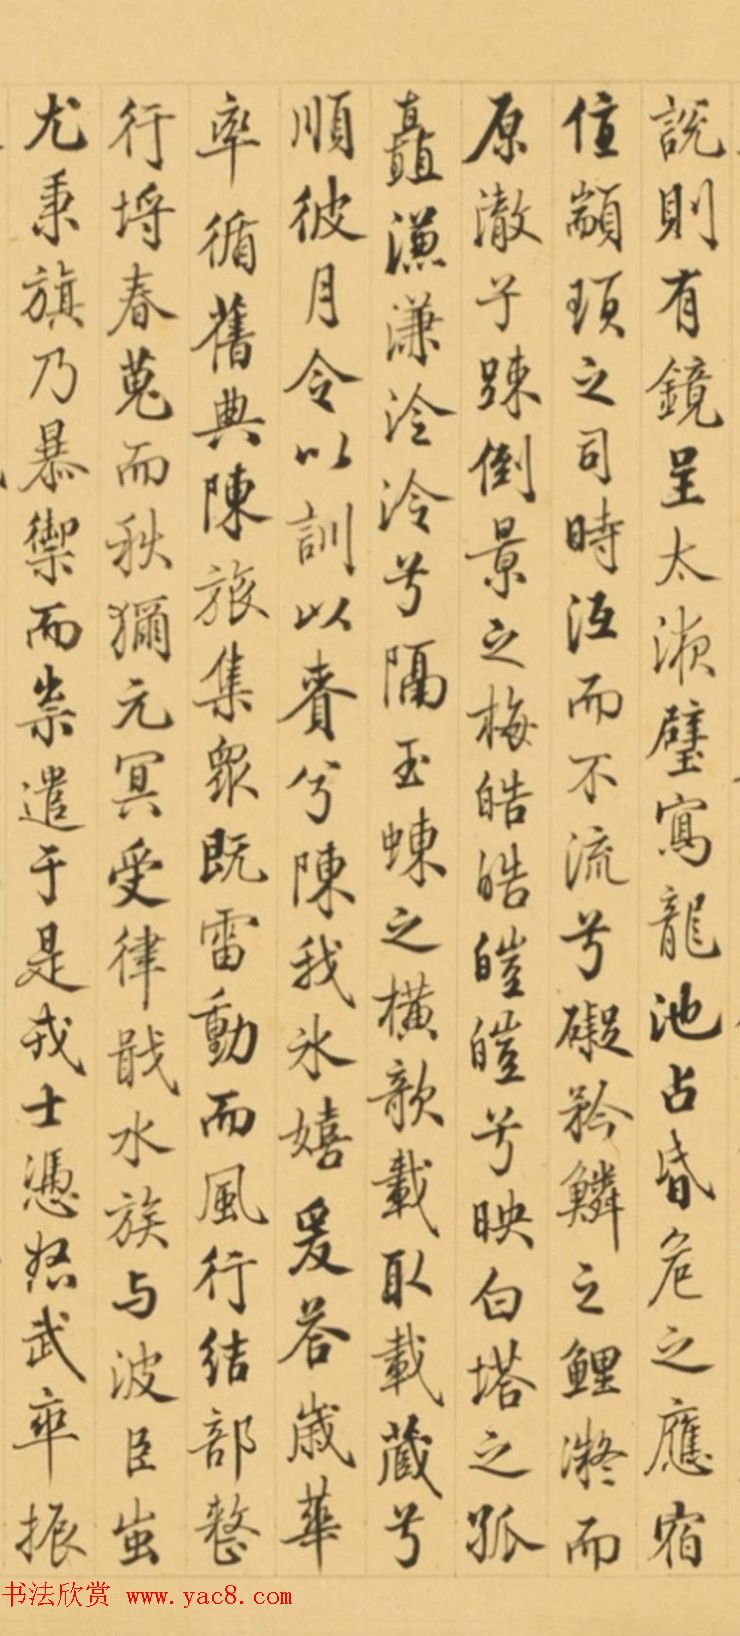 說則有鏡呈太液璧寫龍池占昏危之應宿
值顓頊之司時沍而不流兮礙矜鱗之鯉凝而
原澈兮踈倒景之梅皓皓皚皚兮映白塔之孤
矗溓溓泠泠兮隔玉蝀之橫歌載取載藏兮
順彼月令以訓以賚兮陳我氷嬉爰荅歲華
率循舊典陳旅集眾既雷動而風行結部整
行埒春蒐而秋獮元冥受律戢水族与波臣蚩
尤秉旗乃暴禦而祟遣于是戎士憑怒武卒振
书法欣赏 www.yac8.com